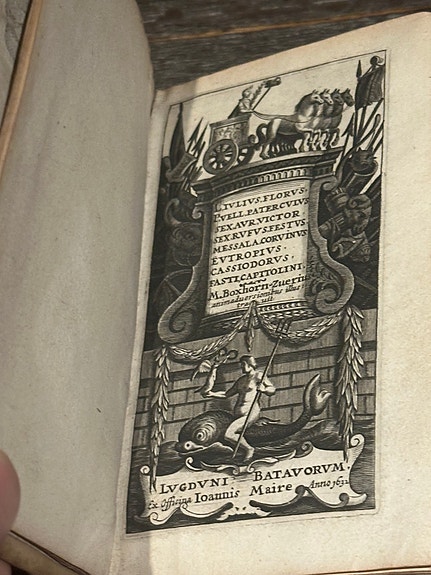 L. IVLIVS. FLORUS.
P. VELL. PATERCVLVS
SEX. AVR. VICTOR.
SEX. RVFVS. FESTVS.
MESSALA. CORVINUS
EVTROPIVS.
CASSIODORVS.
FASTI CAPITOLINI.
M. Boxhorn-Zuerius
animadversionibus illus
travit
LVGDVNI BATAVORVM.
Ex Officina Ioannis Maire Anno